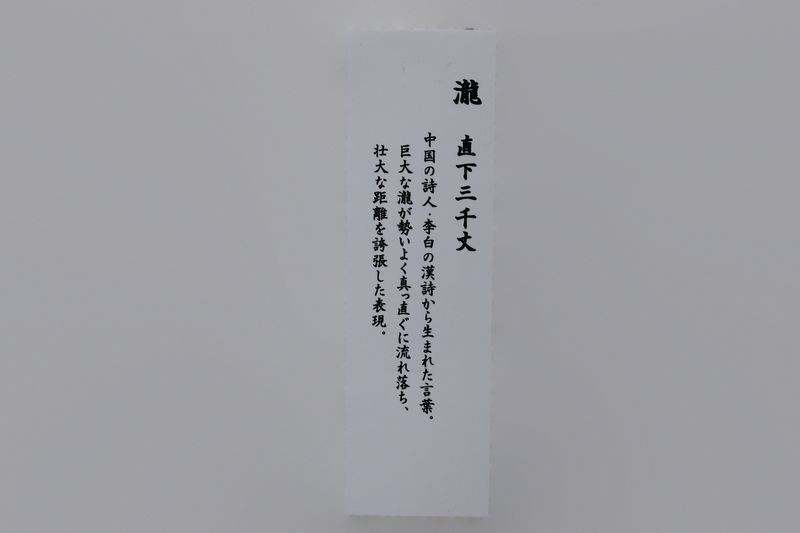 瀧　直下三千丈
中国の詩人・李白の漢詩から生まれた言葉。
巨大な瀧が勢いよく真っ直ぐに流れ落ち、
壮大な距離を誇張した表現。